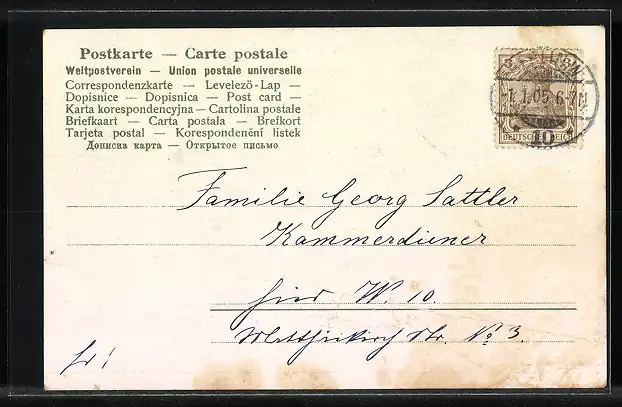 Postkarte — Carte postale
Weltpostverein — Union postale universelle
Correspondenzkarte — Levelezö-Lap —
Dopisnice — Dopisnica — Post card —
Karta korespondencyjna — Cartolina postale
Briefkaart — Carta postala — Brefkort
Tarjeta postal — Korespondenční listek
Дописна карта — Открытое письмо
BERLIN
1.1.05 6-7N
10
DEUTSCHES REICH
Familie Georg Sattler
Kammerdiener
hier W. 10.
Str. No 3.